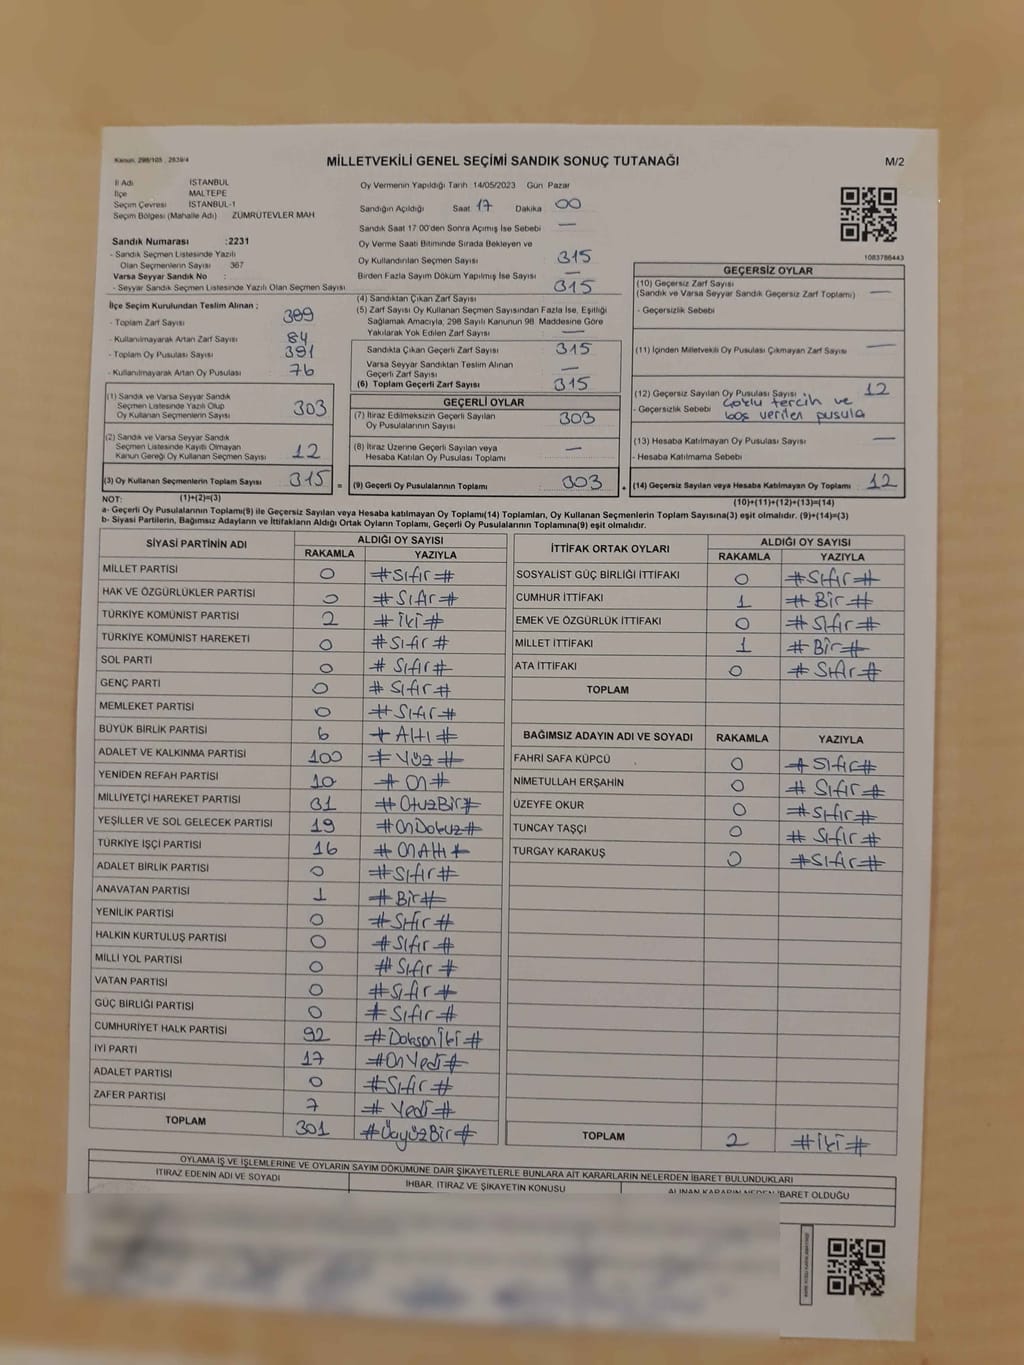 Kanun, 298/105 , 2839/4
MİLLETVEKİLİ GENEL SEÇİMİ SANDIK SONUÇ TUTANAĞI
M/2
İl Adı İSTANBUL
İlçe MALTEPE
Seçim Çevresi İSTANBUL-1
Seçim Bölgesi (Mahalle Adı) ZÜMRÜTEVLER MAH
Sandık Numarası :2231
- Sandık Seçmen Listesinde Yazılı
Olan Seçmenlerin Sayısı 367
Varsa Seyyar Sandık No :
- Seyyar Sandık Seçmen Listesinde Yazılı Olan Seçmen Sayısı
İlçe Seçim Kurulundan Teslim Alınan ;
- Toplam Zarf Sayısı 399
- Kullanılmayarak Artan Zarf Sayısı 84
- Toplam Oy Pusulası Sayısı 391
- Kullanılmayarak Artan Oy Pusulası 76
(1) Sandık ve Varsa Seyyar Sandık
Seçmen Listesinde Yazılı Olup
Oy Kullanan Seçmenlerin Sayısı 303
(2) Sandık ve Varsa Seyyar Sandık
Seçmen Listesinde Kayıtlı Olmayan
Kanun Gereği Oy Kullanan Seçmen Sayısı 12
(3) Oy Kullanan Seçmenlerin Toplam Sayısı 315 =
(1)+(2)=(3)
Oy Vermenin Yapıldığı Tarih 14/05/2023 Gün Pazar
Sandığın Açıldığı Saat 17 Dakika 00
Sandık Saat 17:00'den Sonra Açımış İse Sebebi —
Oy Verme Saati Bitiminde Sırada Bekleyen ve
Oy Kullandırılan Seçmen Sayısı 315
Birden Fazla Sayım Döküm Yapılmış İse Sayısı —
(4) Sandıktan Çıkan Zarf Sayısı 315
(5) Zarf Sayısı Oy Kullanan Seçmen Sayısından Fazla İse, Eşitliği
Sağlamak Amacıyla, 298 Sayılı Kanunun 98. Maddesine Göre
Yakılarak Yok Edilen Zarf Sayısı —
Sandıkta Çıkan Geçerli Zarf Sayısı 315
Varsa Seyyar Sandıktan Teslim Alınan
Geçerli Zarf Sayısı —
(6) Toplam Geçerli Zarf Sayısı 315
GEÇERLİ OYLAR
(7) İtiraz Edilmeksizin Geçerli Sayılan
Oy Pusulalarının Sayısı 303
(8) İtiraz Üzerine Geçerli Sayılan veya
Hesaba Katılan Oy Pusulası Toplamı —
(9) Geçerli Oy Pusulalarının Toplamı 303 +
1083786443
GEÇERSİZ OYLAR
(10) Geçersiz Zarf Sayısı
(Sandık ve Varsa Seyyar Sandık Geçersiz Zarf Toplamı) —
- Geçersizlik Sebebi
(11) İçinden Milletvekili Oy Pusulası Çıkmayan Zarf Sayısı —
(12) Geçersiz Sayılan Oy Pusulası Sayısı 12
- Geçersizlik Sebebi Çoklu tercih ve
boş verilen pusula
(13) Hesaba Katılmayan Oy Pusulası Sayısı —
- Hesaba Katılmama Sebebi
(14) Geçersiz Sayılan veya Hesaba Katılmayan Oy Toplamı 12
(10)+(11)+(12)+(13)=(14)
NOT:
a- Geçerli Oy Pusulalarının Toplamı(9) ile Geçersiz Sayılan veya Hesaba katılmayan Oy Toplamı(14) Toplamları, Oy Kullanan Seçmenlerin Toplam Sayısına(3) eşit olmalıdır. (9)+(14)=(3)
b- Siyasi Partilerin, Bağımsız Adayların ve İttifakların Aldığı Ortak Oyların Toplamı, Geçerli Oy Pusulalarının Toplamına(9) eşit olmalıdır.
SİYASİ PARTİNİN ADI ALDIĞI OY SAYISI
RAKAMLA YAZIYLA
MİLLET PARTİSİ 0 #Sıfır#
HAK VE ÖZGÜRLÜKLER PARTİSİ 0 #Sıfır#
TÜRKİYE KOMÜNİST PARTİSİ 2 #İki#
TÜRKİYE KOMÜNİST HAREKETİ 0 #Sıfır#
SOL PARTİ 0 #Sıfır#
GENÇ PARTİ 0 #Sıfır#
MEMLEKET PARTİSİ 0 #Sıfır#
BÜYÜK BİRLİK PARTİSİ 6 #Altı#
ADALET VE KALKINMA PARTİSİ 100 #Yüz#
YENİDEN REFAH PARTİSİ 10 #On#
MİLLİYETÇİ HAREKET PARTİSİ 31 #OtuzBir#
YEŞİLLER VE SOL GELECEK PARTİSİ 19 #OnDokuz#
TÜRKİYE İŞÇİ PARTİSİ 16 #OnAltı#
ADALET BİRLİK PARTİSİ 0 #Sıfır#
ANAVATAN PARTİSİ 1 #Bir#
YENİLİK PARTİSİ 0 #Sıfır#
HALKIN KURTULUŞ PARTİSİ 0 #Sıfır#
MİLLİ YOL PARTİSİ 0 #Sıfır#
VATAN PARTİSİ 0 #Sıfır#
GÜÇ BİRLİĞİ PARTİSİ 0 #Sıfır#
CUMHURİYET HALK PARTİSİ 92 #Doksanİki#
İYİ PARTİ 17 #OnYedi#
ADALET PARTİSİ 0 #Sıfır#
ZAFER PARTİSİ 7 #Yedi#
TOPLAM 301 #ÜçyüzBir#
İTTİFAK ORTAK OYLARI ALDIĞI OY SAYISI
RAKAMLA YAZIYLA
SOSYALİST GÜÇ BİRLİĞİ İTTİFAKI 0 #Sıfır#
CUMHUR İTTİFAKI 1 #Bir#
EMEK VE ÖZGÜRLÜK İTTİFAKI 0 #Sıfır#
MİLLET İTTİFAKI 1 #Bir#
ATA İTTİFAKI 0 #Sıfır#
TOPLAM
BAĞIMSIZ ADAYIN ADI VE SOYADI RAKAMLA YAZIYLA
FAHRİ SAFA KÜPCÜ 0 #Sıfır#
NİMETULLAH ERŞAHİN 0 #Sıfır#
ÜZEYFE OKUR 0 #Sıfır#
TUNCAY TAŞÇI 0 #Sıfır#
TURGAY KARAKUŞ 0 #Sıfır#
TOPLAM 2 #İki#
OYLAMA İŞ VE İŞLEMLERİNE VE OYLARIN SAYIM DÖKÜMÜNE DAİR ŞİKAYETLERLE BUNLARA AİT KARARLARIN NELERDEN İBARET BULUNDUKLARI
İTİRAZ EDENİN ADI VE SOYADI İHBAR, İTİRAZ VE ŞİKAYETİN KONUSU ALINAN KARARIN NEDEN İBARET OLDUĞU